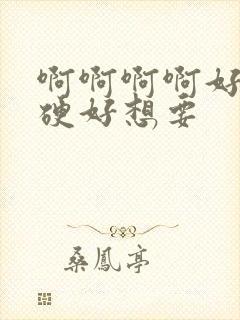 啊啊啊啊好
硬好想要
桑鳳亭